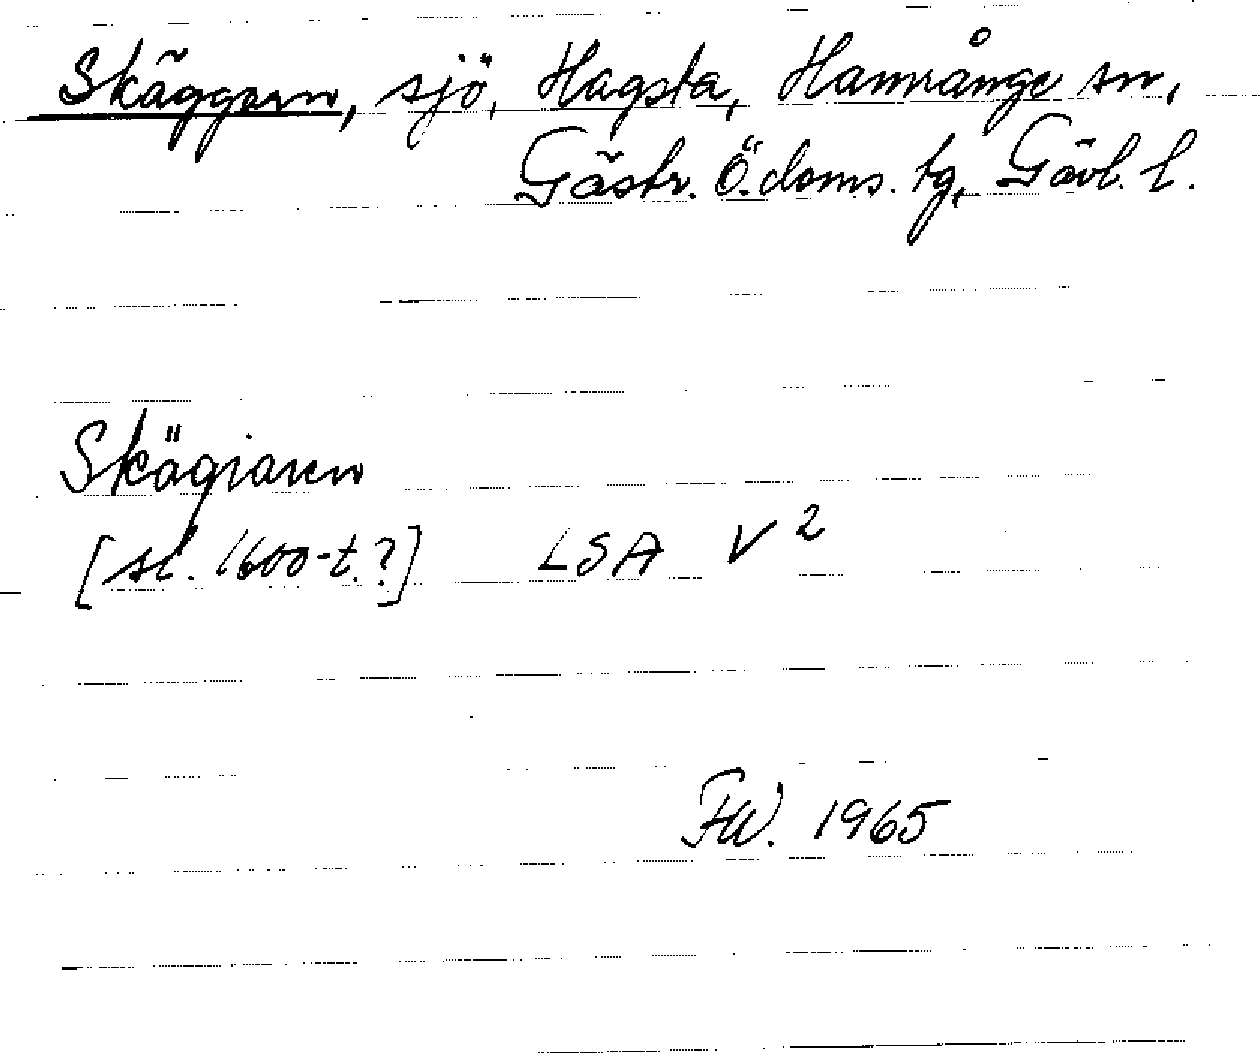 Skäggern, sjö, Hagsta, Hamrånge sn,
Gästr. Ö. doms. tg, Gävl. l.
Skägiaren
[sl. 1600-t.?] LSA V²
FW. 1965